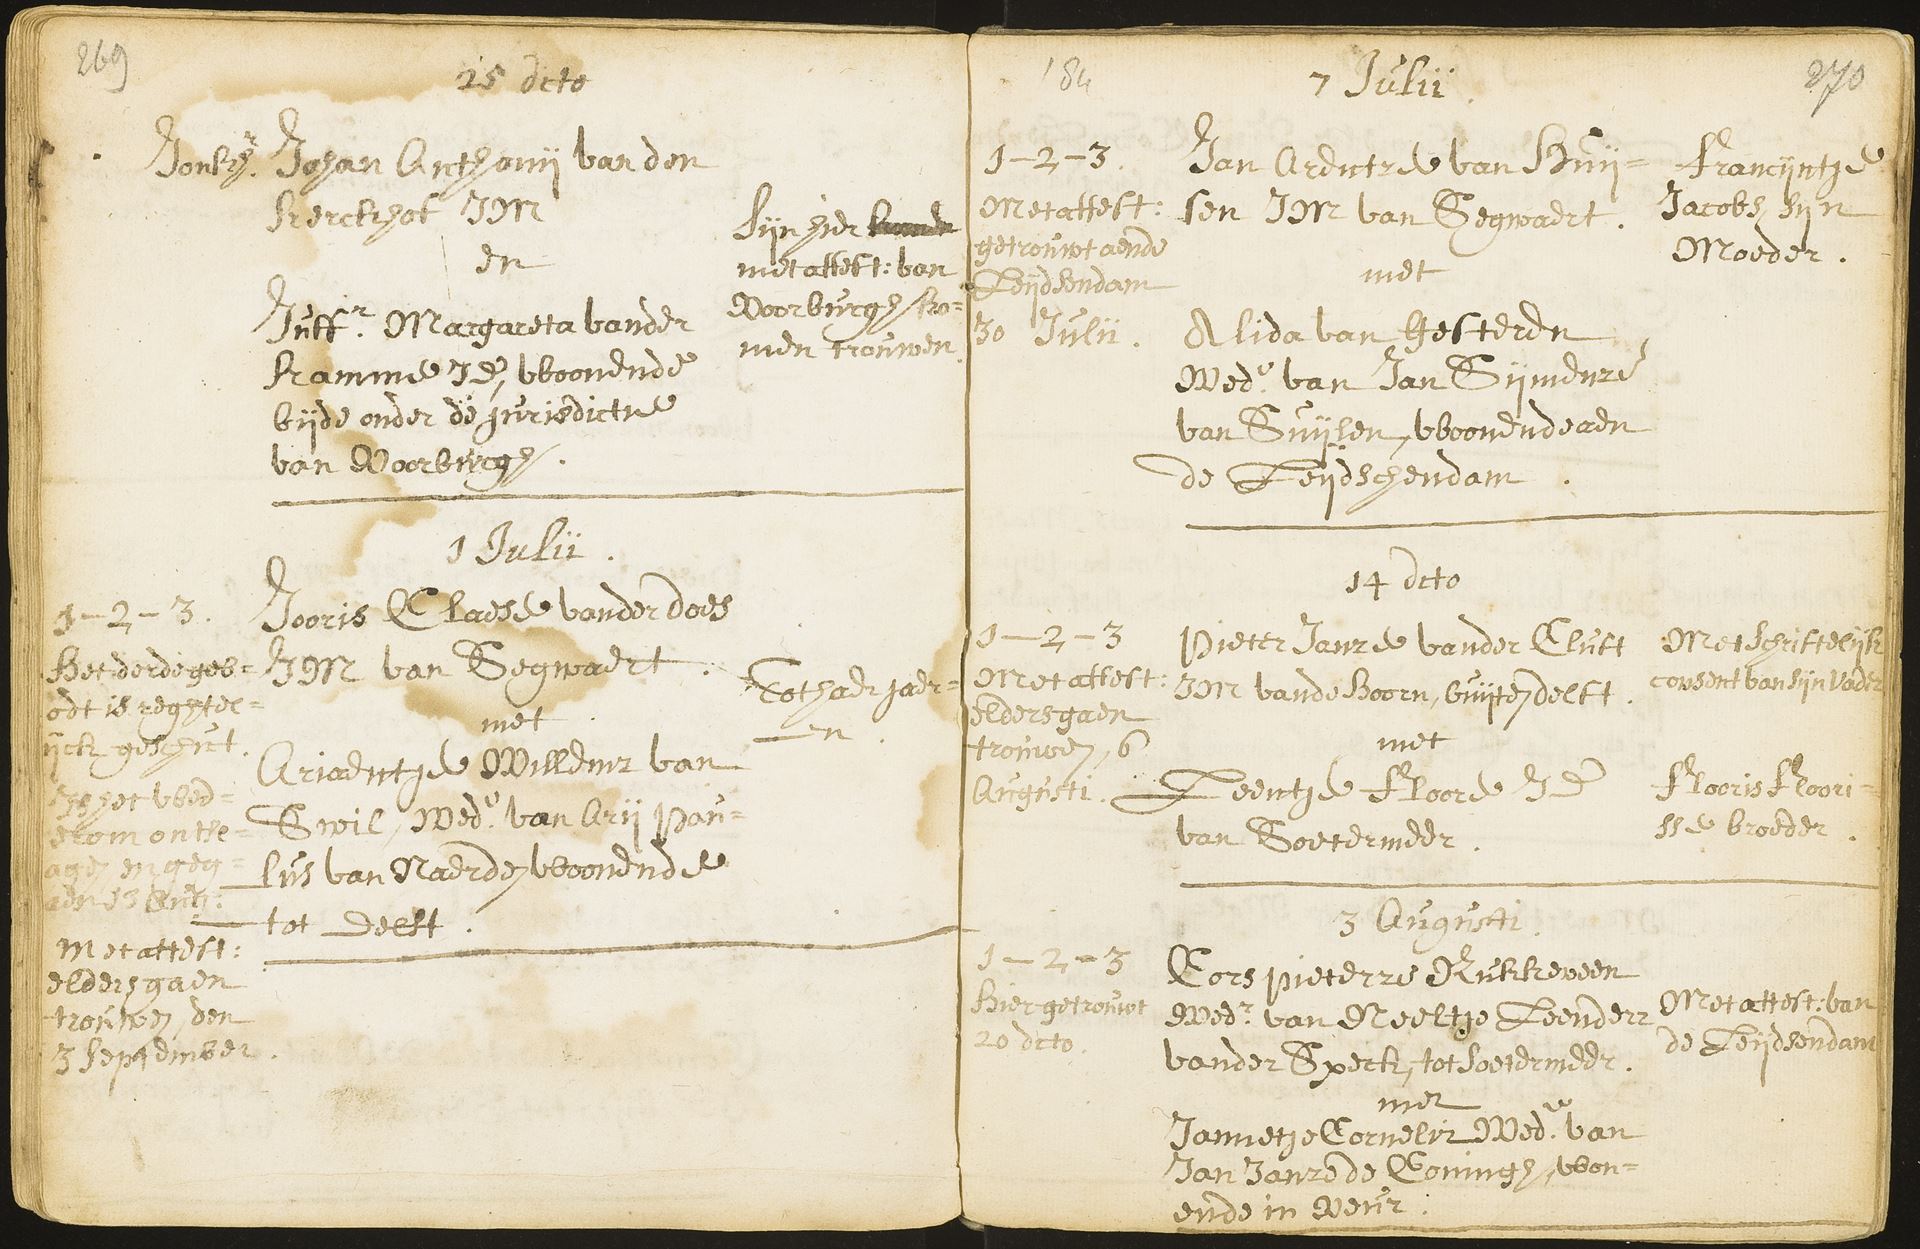 269
25 dcto
Jonkr. Johan Anthonij van den
Kerckhof JM
en
Juffr. Margareta vander
Kramme JD, woonende
bijde onder de jurisdictie
van Voorburgh.
sijn hier
met attest: van
Voorburgh ko=
men trouwen
1 Julij.
1-2-3.
Het derde geb=
odt is reghtel=
ijck geschut.
Is het wed=
erom ontsl=
agen en geg=
aen
Met attest:
elders gaen
trouwen, den
3 September.
Jooris Claesse vander does
JM van Segwaert.
met
Ariaentje Willemz van
Swil, Wede. van Arij Pau=
lus van Naerden woonende
tot Delft.
Tot haer jaer=
en.
184
270
7 Julij.
1-2-3.
Met attest:
getrouwt aende
Leijdsendam
30 Julij.
Jan Arentze van Huij=
sen JM van Segwaert.
met
Alida van Hesteren
Wede. van Jan Sijmenze
van Suijlen, woonende aen
de Leijdschendam.
Francijntje
Jacobs sijn
Moeder.
14 dcto
1-2-3
Met attest:
elders gaen
trouwen, 6
Augusti.
Pieter Janze vander Cluft
JM vande Hoorn, buijten delft.
met
Leentje Floore JD
van Soetermeer.
Met Schriftelijk
consent van sijn Vader
Flooris Floori=
sse broeder.
3 Augusti.
1-2-3
Hier getrouwt
20 dcto.
Cors Pieterze Rukkeveen
Wedr. van Neeltje Leenderz
vander Speck, tot Soetermeer.
met
Jannetje Corneliz Wede. van
Jan Janze de Coningh, won=
ende in Veur.
Met attest: van
de Leijdsendam